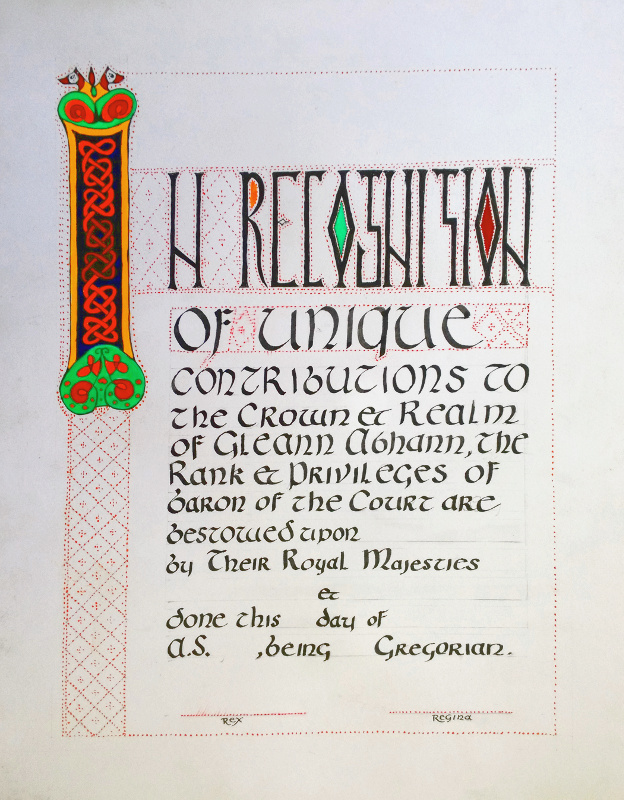 IN RECOGNITION
OF UNIQUE
CONTRIBUTIONS TO
the Crown & Realm
of Gleann Abhann, the
Rank & Privileges of
Baron of the Court are
bestowed upon
by Their Royal Majesties
et
done this day of
A.S. , being Gregorian.
Rex Regina